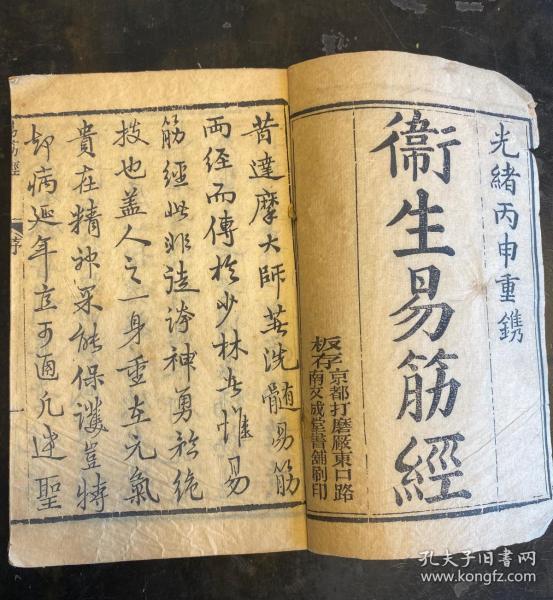 光緒丙申重鐫
衞生易筋經
板存京都打磨厰東口路
南文成堂書舖刷印
昔達摩大師著洗髓易筋
兩經而傳於少林者惟易
筋經此非誇神勇於絶
技也盖人之一身重在元氣
貴在精神果能保護豈特
却病延年立可通凡達聖
易筋經
序
孔夫子旧书网
www.kongfz.com